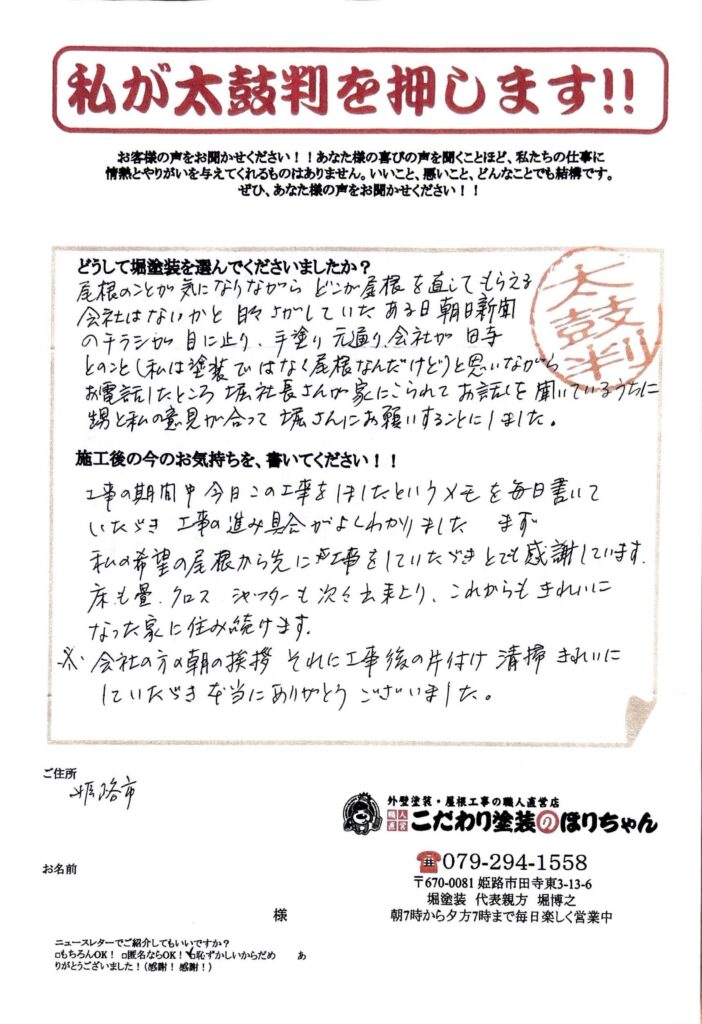 私が太鼓判を押します!!
お客様の声をお聞かせください！！あなた様の喜びの声を聞くことほど、私たちの仕事に
情熱とやりがいを与えてくれるものはありません。いいこと、悪いこと、どんなことでも結構です。
ぜひ、あなた様の声をお聞かせください！！
どうして堀塗装を選んでくださいましたか？
尾根のことが気になりながら どこか屋根を直してもらえる
会社はないかと 日々さがしていた ある日 朝日新聞
のチラシが目に止り、手塗り 元通り、会社が 田寺
とのこと(私は塗装ではなく尾根なんだけど)と思いながら
お電話したところ 堀社長さんが家にこられてお話しを聞いているうちに
甥と私の意見が合って 堀さんにお願いすることにしました。
太鼓判
施工後の今のお気持ちを、書いてください！！
工事の期間中 今日この工事をしましたというメモを毎日書いて
いただき 工事の進み具合がよくわかりました まず
私の希望の尾根から先に工事をしていただきとても感謝しています.
床も畳.クロス シャッターも次々出来上り、これからもきれいに
なった家に住み続けます.
※ 会社の方の朝の挨拶 それに工事後の片付け 清掃 きれいに
していただき本当にありがとう ございました。
ご住所
姫路市
お名前
様
外壁塗装・屋根工事の職人直営店
職人直営 こだわり塗装のほりちゃん
☎079-294-1558
〒670-0081 姫路市田寺東3-13-6
堀塗装 代表親方 堀博之
朝7時から夕方7時まで毎日楽しく営業中
ニュースレターでご紹介してもいいですか？
□もちろんOK！ □匿名ならOK！ ☑恥ずかしいからだめ あ
りがとうございました！（感謝！感謝！）